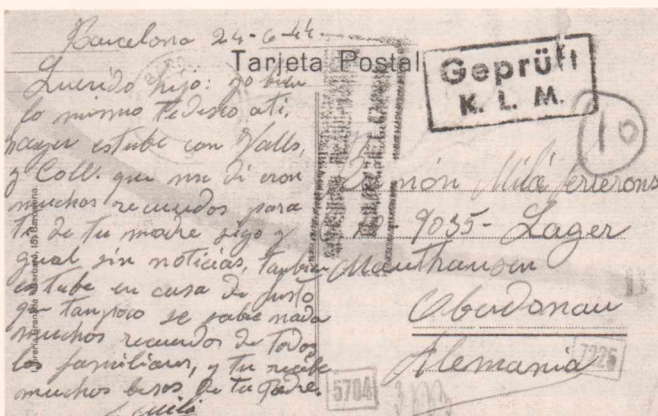 Barcelona 24-6-44
Tarjeta Postal
Querido hijo: yo bien
lo mismo te deseo a ti,
ayer estube con Valls,
y Coll. que me dieron
muchos recuerdos para
ti de tu madre sigo y
gual sin noticias, tambien
estube en casa de Justo
que tampoco se sabe nada
muchos recuerdos de todos
los familiares, y tu recibe
muchos besos de tu Padre.
Geprüft
K. L. M.
10
Ramón Milá Ferrerons
Nº-9035-Lager
Mauthausen
Oberdonau
Alemania
5704
7225